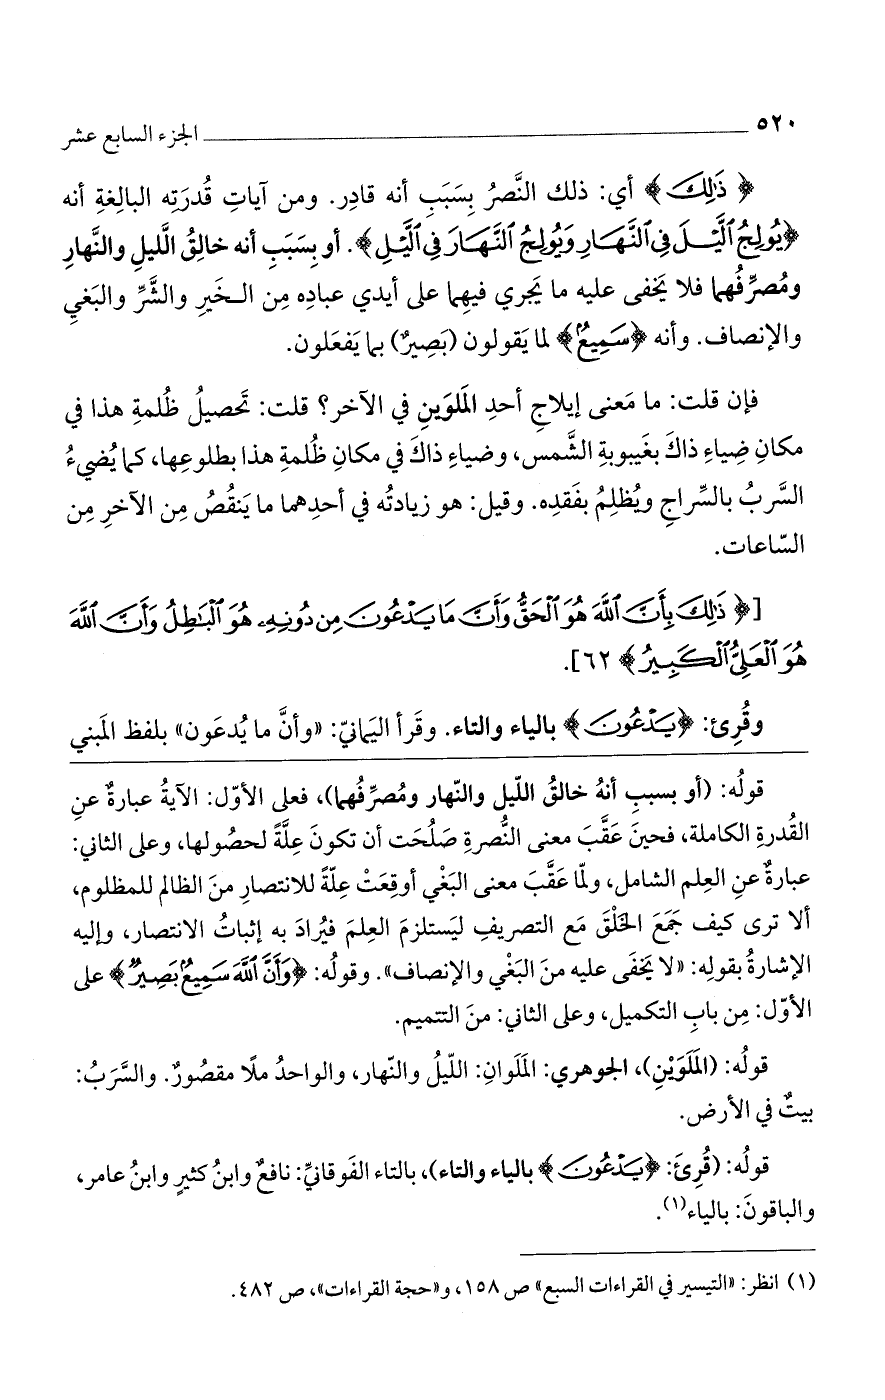 ٥٢٠ الجزء السابع عشر
﴿ذَٰلِكَ﴾ أي: ذلك النَّصرُ بِسَبَبِ أنه قادِر. ومن آياتِ قُدرَتِه البالِغةِ أنه
﴿يُولِجُ ٱلَّيْلَ فِى ٱلنَّهَارِ وَيُولِجُ ٱلنَّهَارَ فِى ٱلَّيْلِ﴾. أو بِسَبَبِ أنه خالِقُ اللَّيلِ والنَّهارِ
ومُصرِّفُهما فلا يَخفى عليه ما يَجري فيهِما على أيدي عبادِه مِن الـخَيرِ والشَّرِّ والبَغيِ
والإنصاف. وأنه ﴿سَمِيعٌ﴾ لما يَقولون (بَصِيرٌ) بما يَفعَلون.
فإن قلت: ما مَعنى إيلاجِ أحدِ المَلَوَينِ في الآخر؟ قلت: تَحصيلُ ظُلمةِ هذا في
مكانِ ضِياءِ ذاكَ بغَيبوبةِ الشَّمس، وضياءِ ذاكَ في مكانِ ظُلمةِ هذا بطلوعِها، كما يُضيءُ
السَّربُ بالسِّراجِ ويُظلِمُ بفَقدِه. وقيل: هو زيادتُه في أحدِهما ما يَنقُصُ مِن الآخرِ مِن
السّاعات.
[﴿ذَٰلِكَ بِأَنَّ ٱللَّهَ هُوَ ٱلْحَقُّ وَأَنَّ مَا يَدْعُونَ مِن دُونِهِۦ هُوَ ٱلْبَٰطِلُ وَأَنَّ ٱللَّهَ
هُوَ ٱلْعَلِىُّ ٱلْكَبِيرُ﴾ ٦٢].
وقُرِئ: ﴿يَدْعُونَ﴾ بالياء والتاء. وقَرأ اليَمانيّ: «وأنَّ ما يُدعَون» بلفظ المَبني
قولُه: (أو بسببِ أنهُ خالقُ اللّيلِ والنّهارِ ومُصرِّفُهما)، فعلى الأوّل: الآيةُ عبارةٌ عنِ
القُدرةِ الكاملة، فحينَ عَقَّبَ معنى النُّصرةِ صَلُحَت أن تكونَ عِلَّةً لحصُولها، وعلى الثاني:
عبارةٌ عنِ العِلم الشامل، ولمّا عَقَّبَ معنى البَغْي أوقِعَتْ عِلّةً للانتصارِ منَ الظالم للمظلوم،
ألا ترى كيف جَمَعَ الخَلْقَ مَع التصريفِ ليَستلزمَ العِلمَ فيُرادَ به إثباتُ الانتصار، وإليه
الإشارةُ بقولِه: «لا يَخفَى عليه منَ البَغْي والإنصاف». وقولُه: ﴿وَأَنَّ ٱللَّهَ سَمِيعٌۢ بَصِيرٌ﴾ على
الأوّل: مِن بابِ التكميل، وعلى الثاني: منَ التتميم.
قولُه: (المَلَوَيْنِ)، الجوهري: المَلَوانِ: اللّيلُ والنّهار، والواحدُ ملًا مقصُورٌ. والسَّرَبُ:
بيتٌ في الأرض.
قولُه: (قُرِئَ: ﴿يَدْعُونَ﴾ بالياء والتاء)، بالتاء الفَوقانيِّ: نافعٌ وابنُ كثيرٍ وابنُ عامر،
والباقونَ: بالياء(١).
(١) انظر: «التيسير في القراءات السبع» ص ١٥٨، و«حجة القراءات»، ص ٤٨٢.